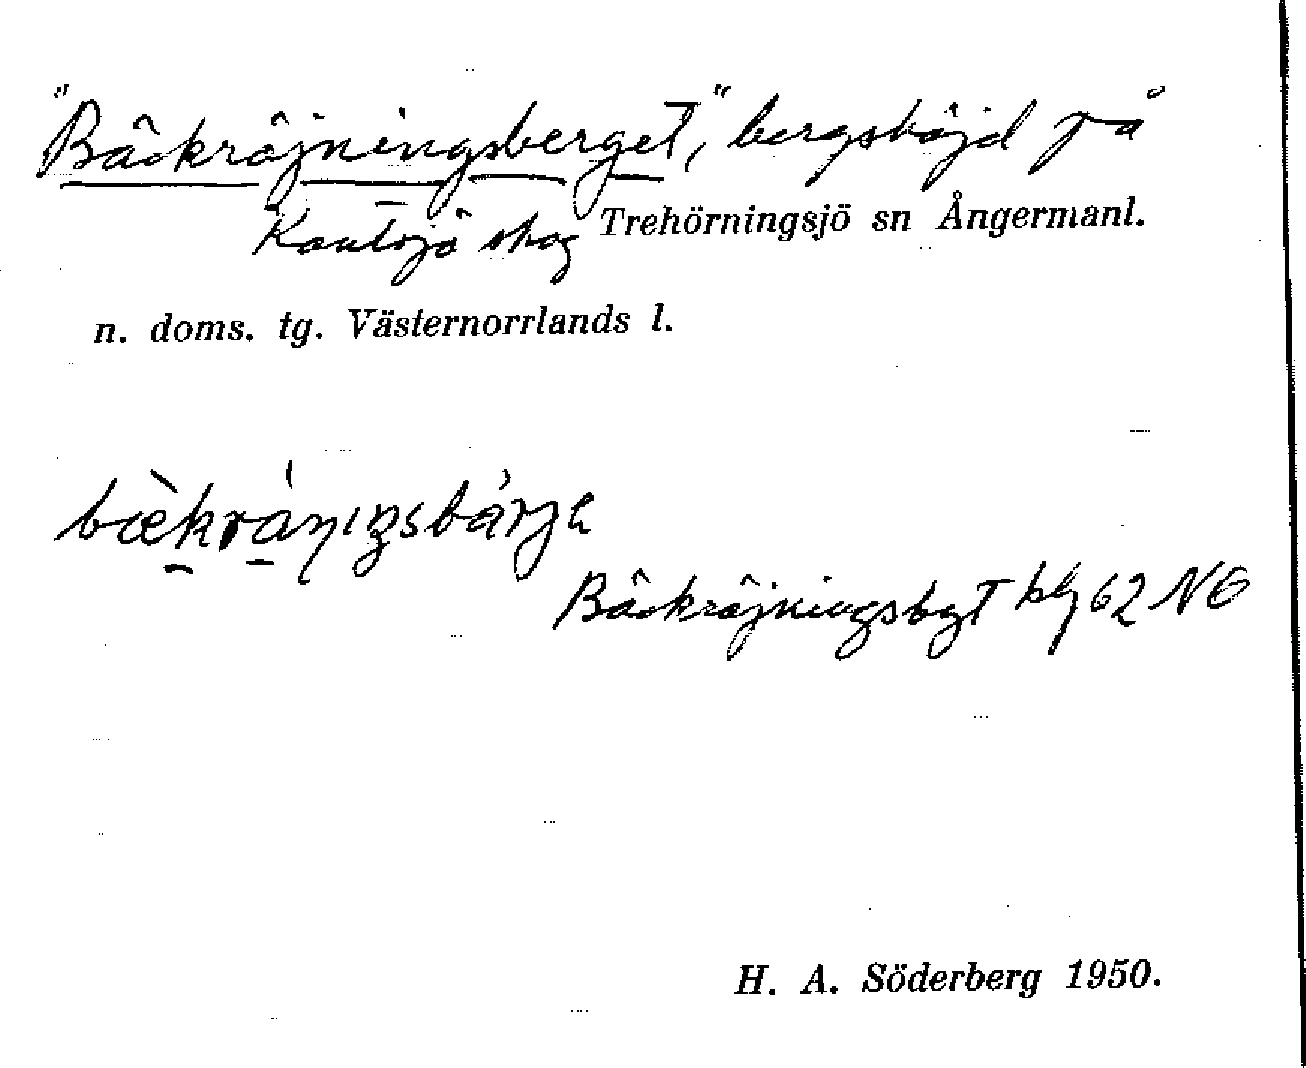 "Bäckröjningsberget," bergshöjd på
Kautsjö skog Trehörningsjö sn Ångermanl.
n. doms. tg. Västernorrlands l.
Bäckröjningsbgt kbl 62 NO
H. A. Söderberg 1950.